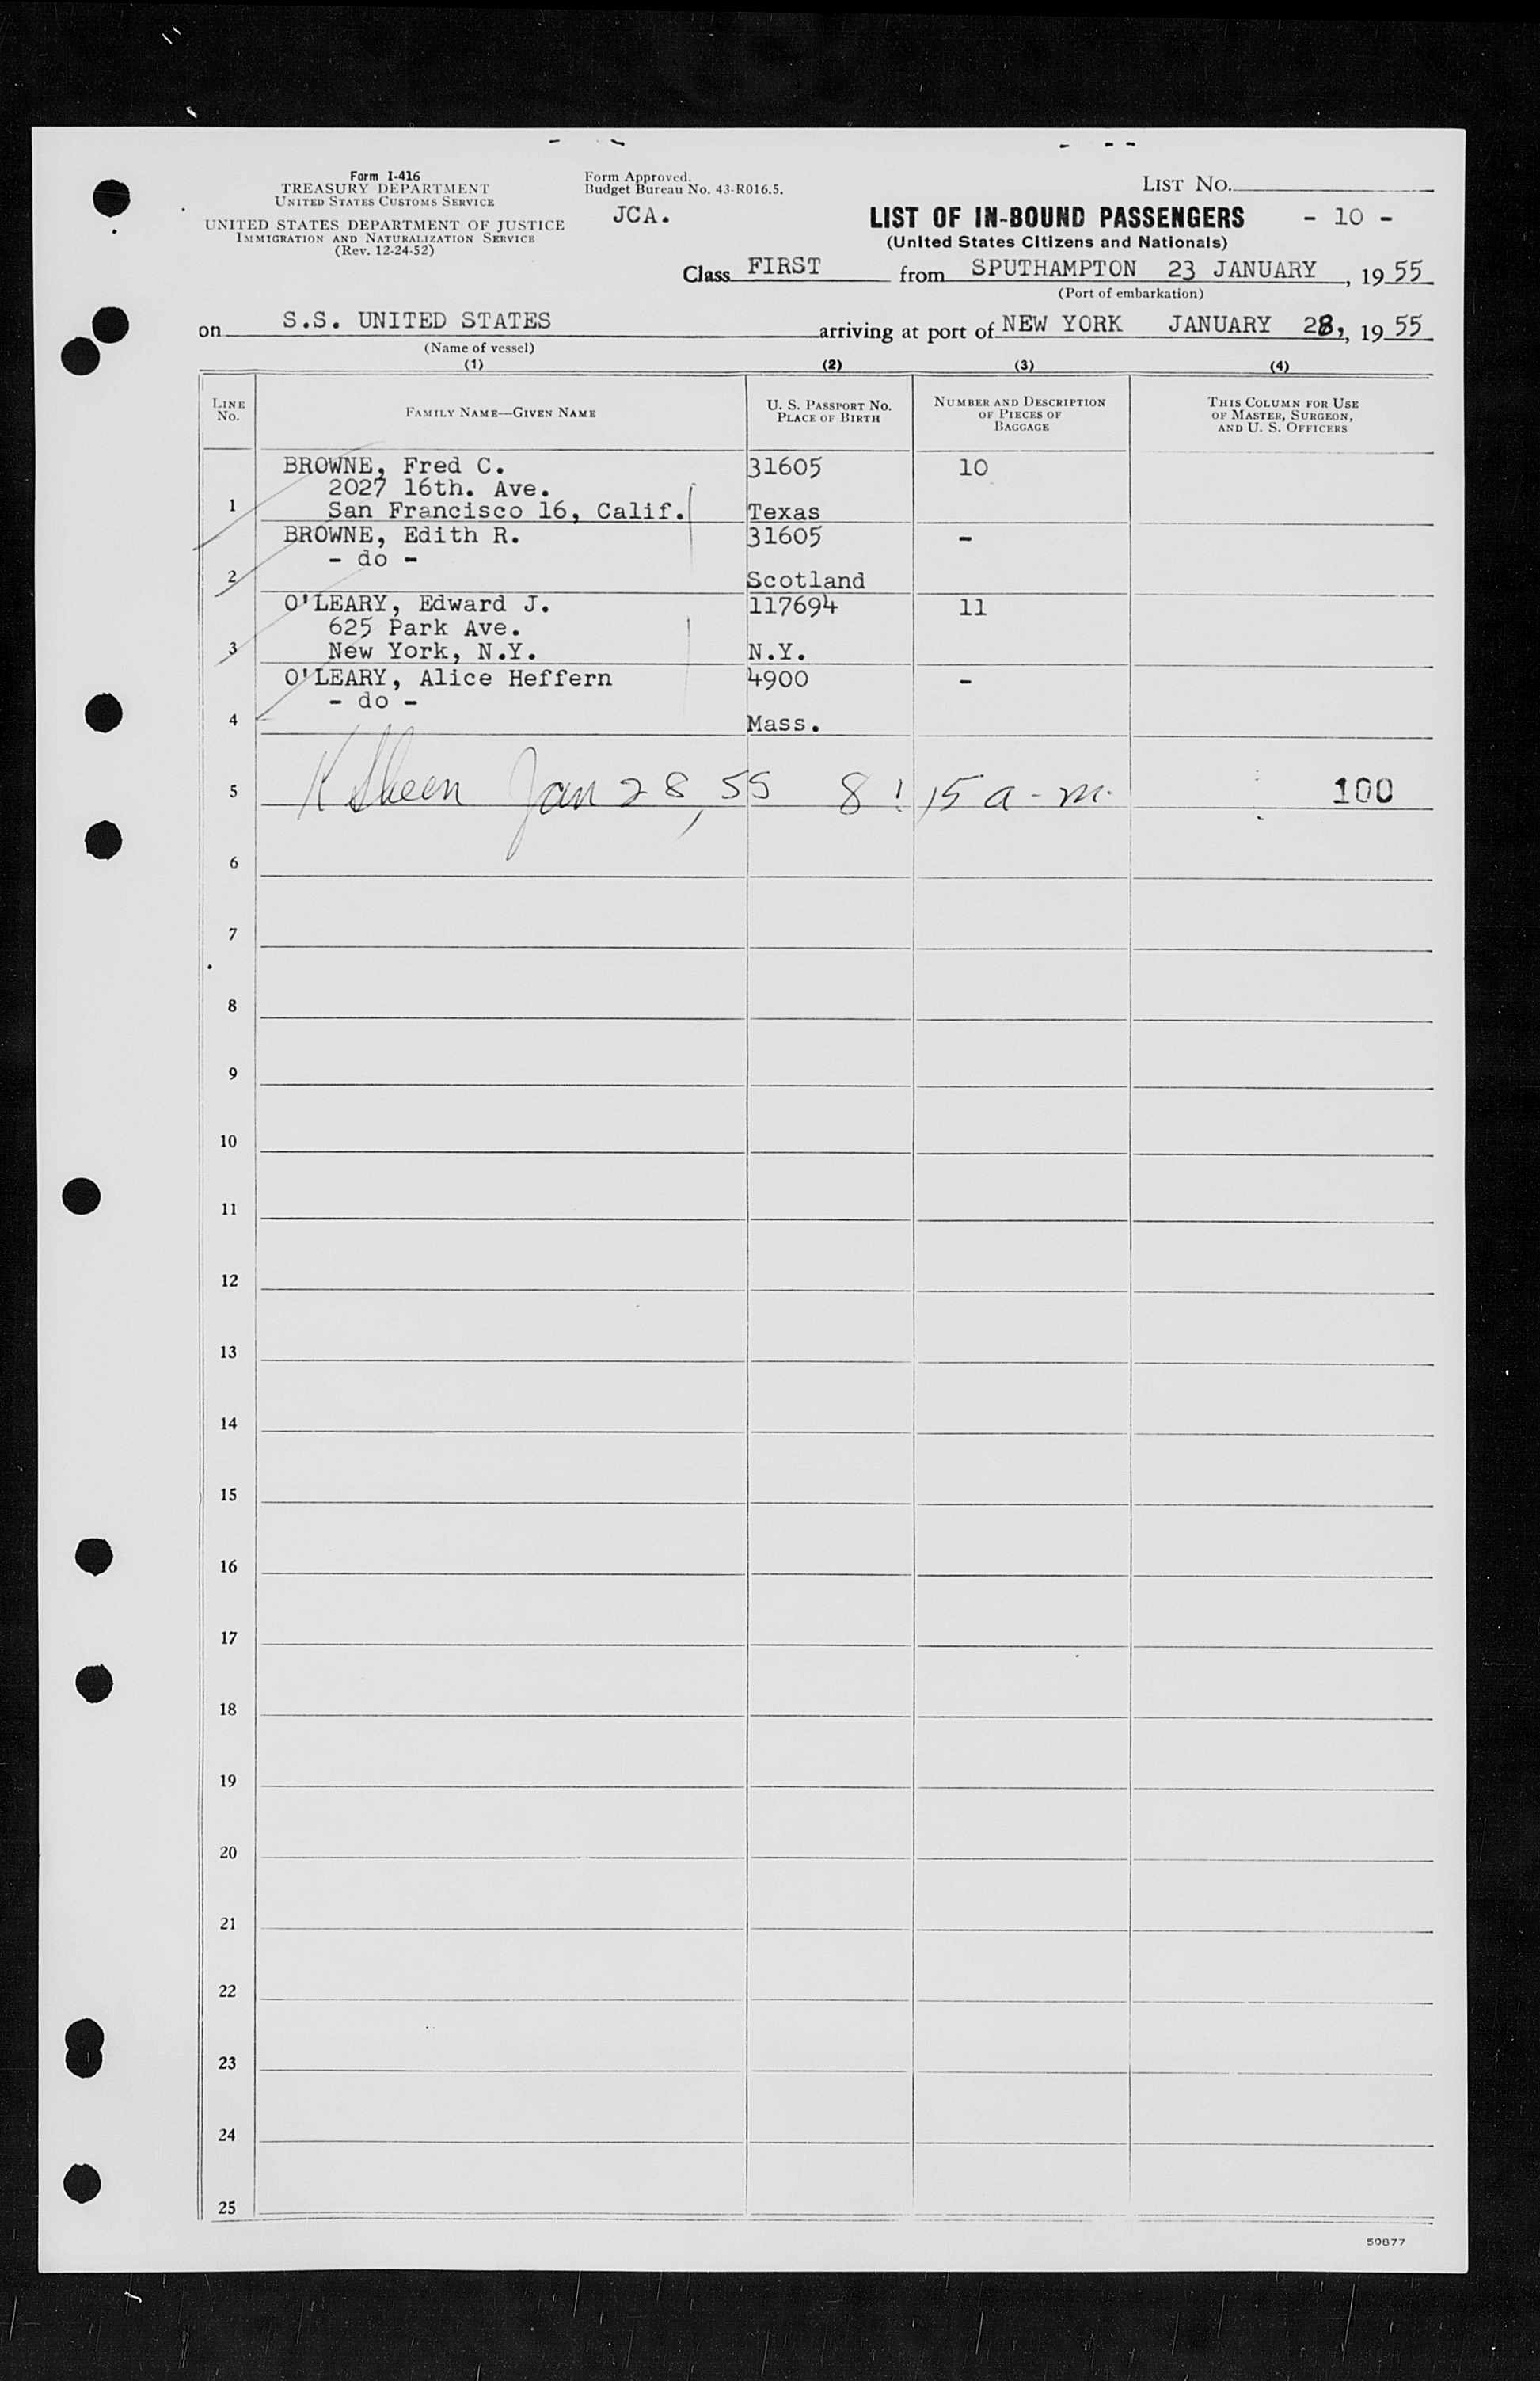 Form I-416
TREASURY DEPARTMENT
UNITED STATES CUSTOMS SERVICE
UNITED STATES DEPARTMENT OF JUSTICE
IMMIGRATION AND NATURALIZATION SERVICE
(Rev. 12-24-52)
Form Approved.
Budget Bureau No. 43-R016.5.
JCA.
LIST NO.
LIST OF IN-BOUND PASSENGERS - 10 -
(United States Citizens and Nationals)
Class FIRST from SPUTHAMPTON 23 JANUARY, 19 55
(Port of embarkation)
on S.S. UNITED STATES arriving at port of NEW YORK JANUARY 28,, 19 55
(Name of vessel)
(1) (2) (3) (4)
LINE NO.
FAMILY NAME—GIVEN NAME
U. S. PASSPORT NO.
PLACE OF BIRTH
NUMBER AND DESCRIPTION
OF PIECES OF
BAGGAGE
THIS COLUMN FOR USE
OF MASTER, SURGEON,
AND U. S. OFFICERS
BROWNE, Fred C. 31605 10
2027 16th. Ave.
1 San Francisco 16, Calif. Texas
BROWNE, Edith R. 31605 -
- do -
2 Scotland
O'LEARY, Edward J. 117694 11
625 Park Ave.
3 New York, N.Y. N.Y.
O'LEARY, Alice Heffern 4900 -
- do -
4 Mass.
5 Jan 28, 55 8:15 a-m. 100
6
7
8
9
10
11
12
13
14
15
16
17
18
19
20
21
22
23
24
25
50877